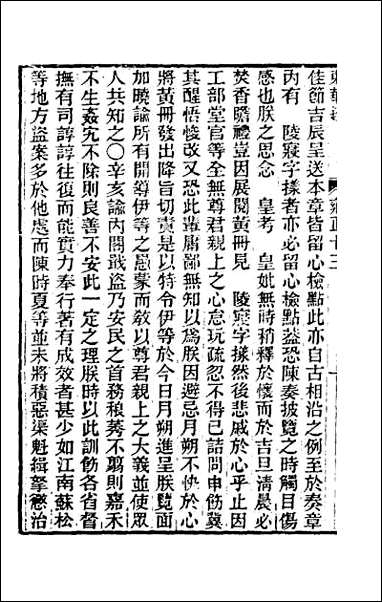 東華錄 雍正十三
佳節吉辰呈送本章皆留心檢點此亦自古相沿之例至於奏章
內有　陵寢字樣者亦必留心檢點蓋恐陳奏披覽之時觸目傷
感也朕之思念　皇考　皇妣無時稍釋於懷而於吉旦清晨必
焚香瞻禮豈因展閱黃冊見　陵寢字樣然後悲戚於心乎止因
工部堂官等全無尊君親上之心怠玩疏忽不得已詰問申飭冀
其醒悟悛改又恐此輩庸鄙無知以為朕因避忌月朔不快於心
將黃冊發出降旨切責是以特令伊等於今日月朔進呈朕覽面
加曉諭所有開導伊等之愚蒙而敎以尊君親上之大義並使眾
人共知之〇辛亥諭內閣戢盜乃安民之首務稂莠不翦則嘉禾
不生姦宄不除則良善不安此一定之理朕時以此訓飭各省督
撫有司諄諄往復而能實力奉行著有成效者甚少如江南蘇松
等地方盜案多於他處而陳時夏等並未將積惡渠魁緝拏懲治